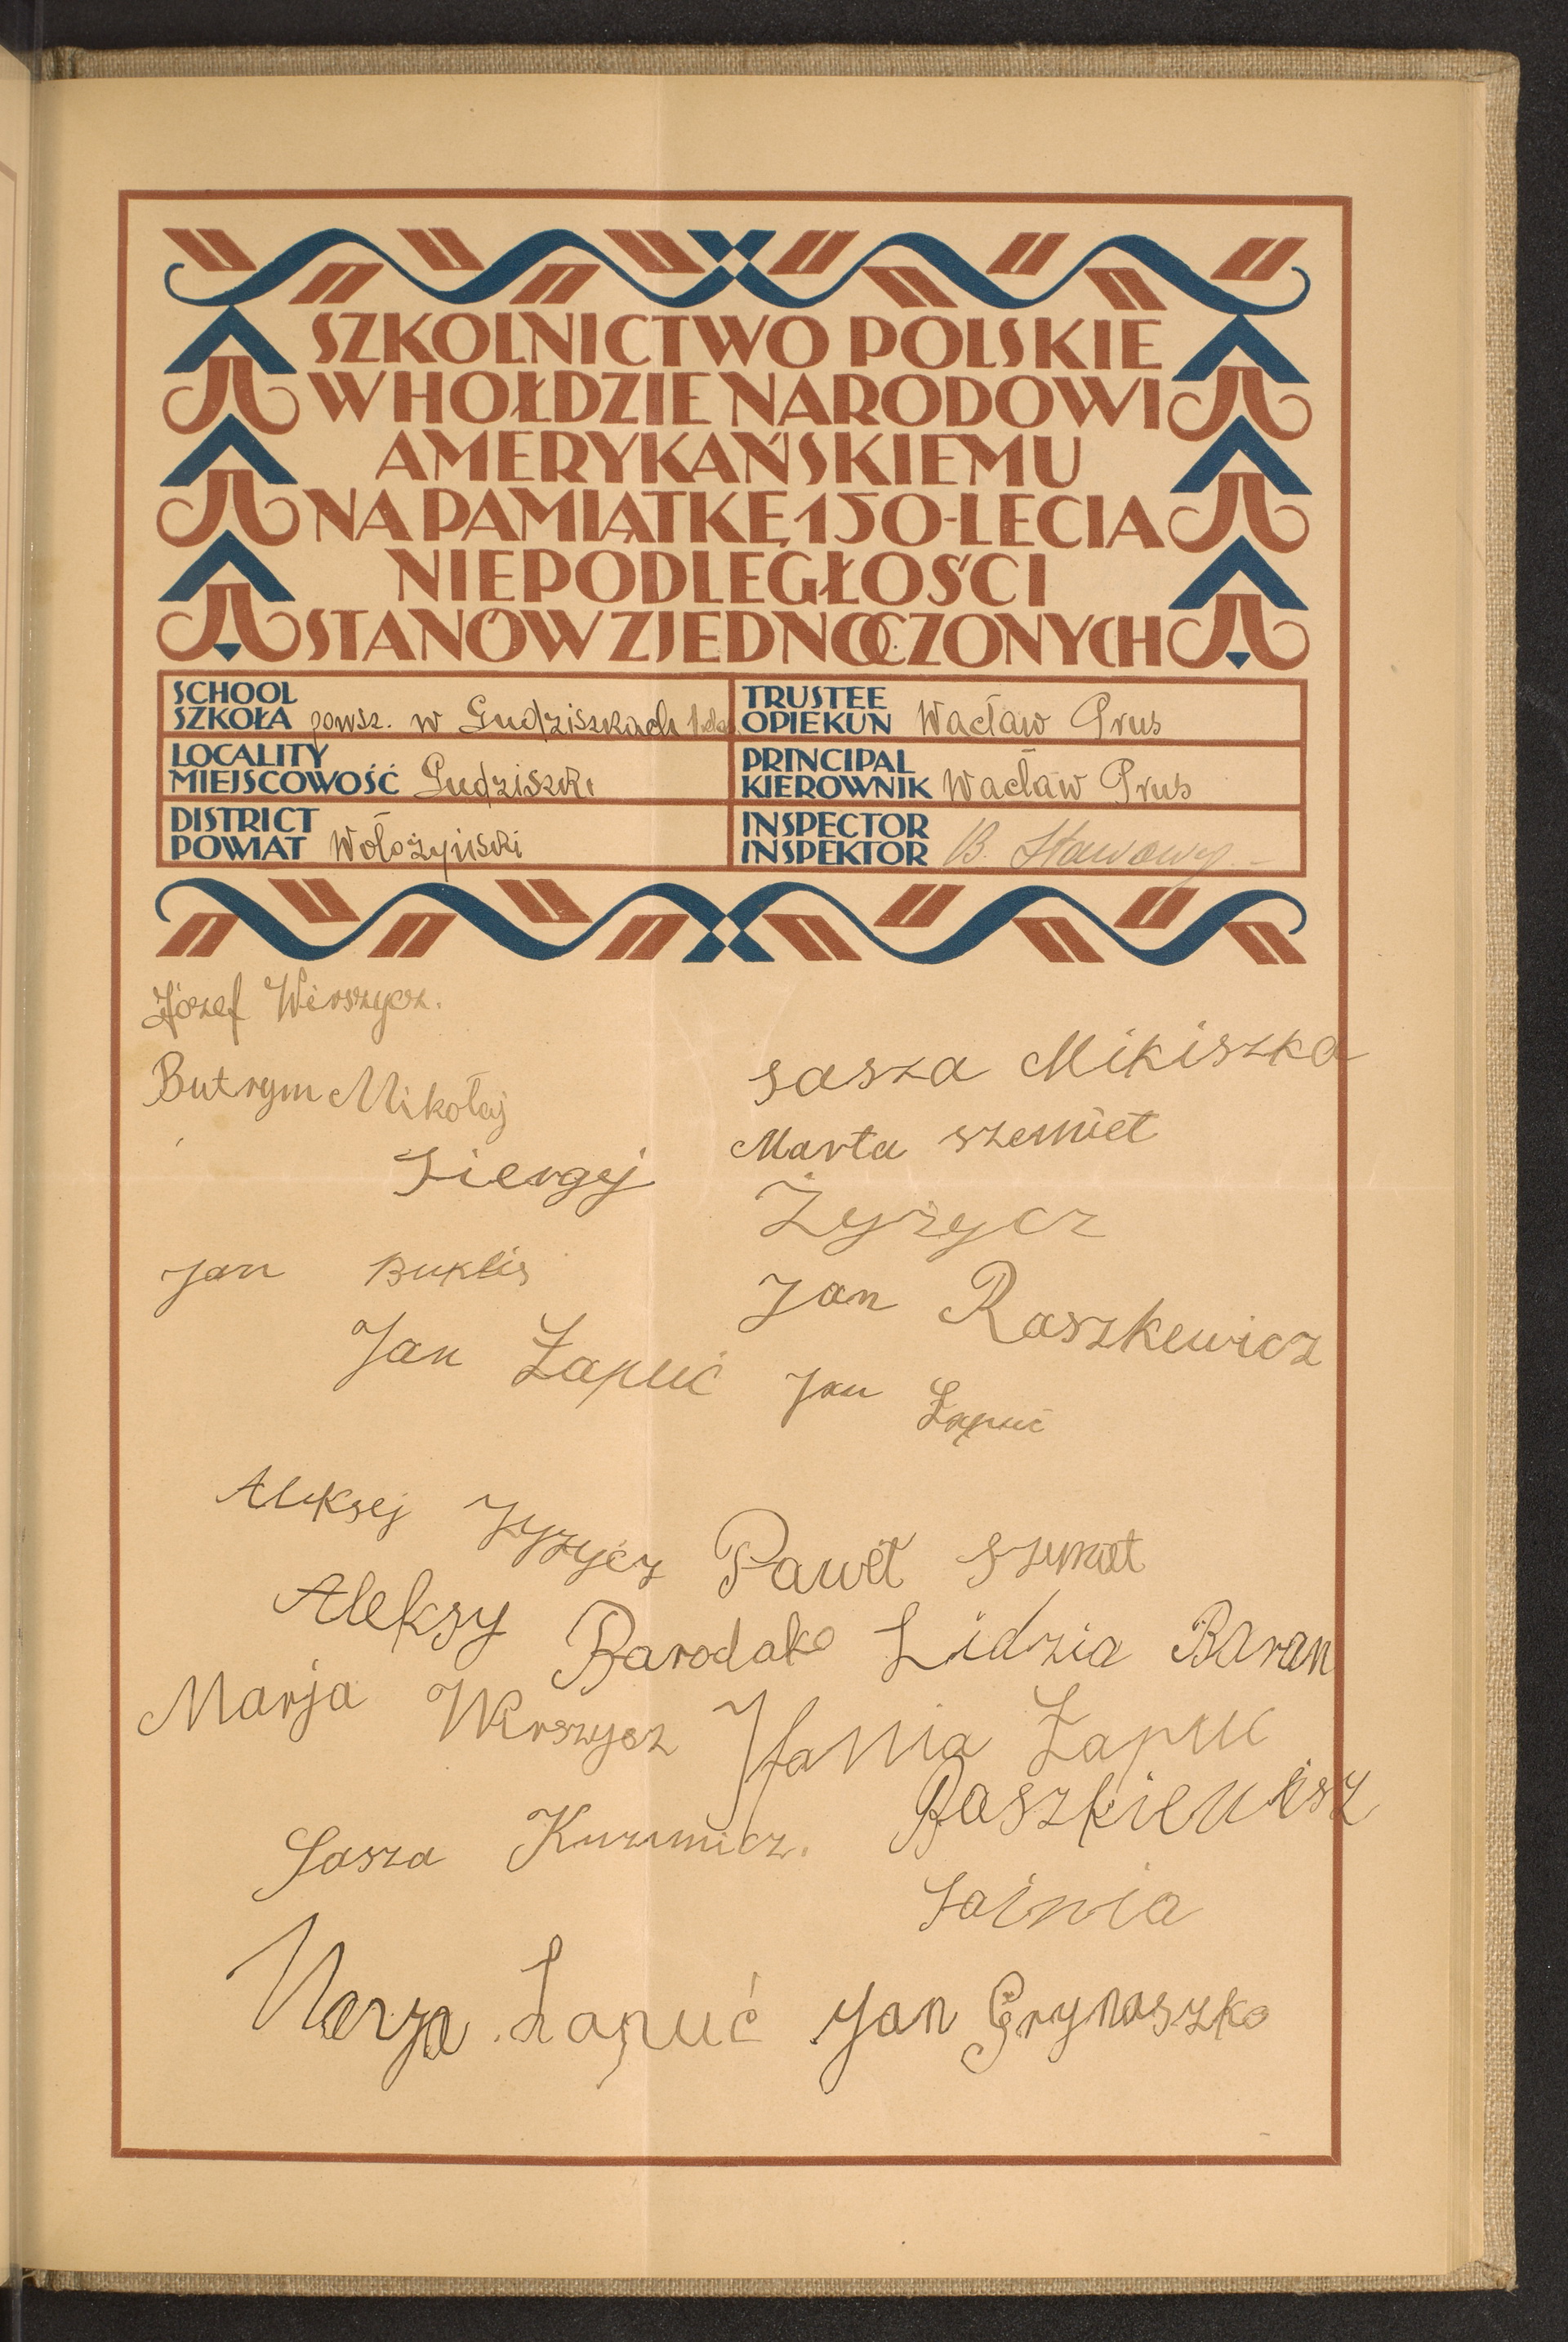 SZKOLNICTWO POLSKIE
W HOŁDZIE NARODOWI
AMERYKAŃSKIEMU
NA PAMIĄTKĘ 150-LECIA
NIEPODLEGŁOŚCI
STANÓW ZJEDNOCZONYCH
SCHOOL
SZKOŁA powsz. w Gudziszkach
LOCALITY
MIEJSCOWOŚĆ Gudziszki
DISTRICT
POWIAT Wołożyński
TRUSTEE
OPIEKUN Wacław Prus
PRINCIPAL
KIEROWNIK Wacław Prus
INSPECTOR
INSPEKTOR B. Stawowy
Józef Wirszycz.
Sasza Mikiszka
Butrym Mikołaj
Marta Szemiet
Siergej Żyżycz
Jan Buklis
Jan Raszkewicz
Jan Łapuć Jan Łapuć
Aleksej Żyżycz Paweł Szemiet
Aleksy Barodako Lidzia Baran
Marja Wirszycz Hania Łapuc
Sasza Kuzmicz. Raszkiewisz
Sainia
Marja Łapuć Jan Grynaszko